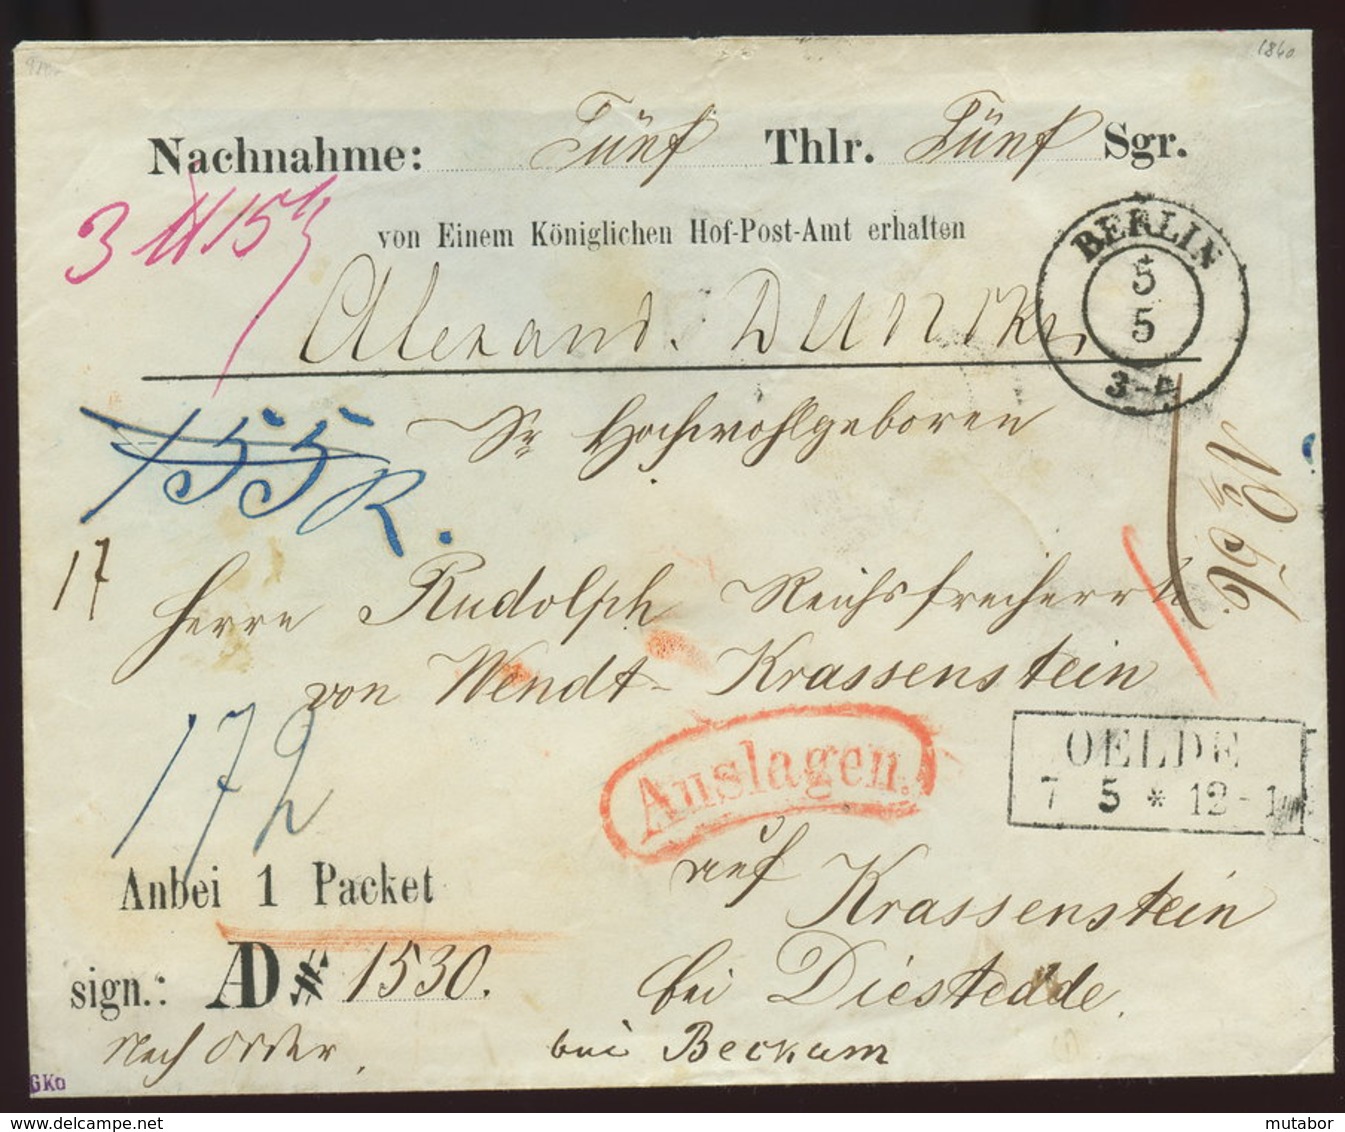 1860
Nachnahme: Fünf Thlr. Fünf Sgr.
von Einem Königlichen Hof-Post-Amt erhalten
Alexand. Duncker
BERLIN
5
5
3-4
Sr Hochwohlgeboren
155
R.
17
Herrn Rudolph Reichsfreiherrn
von Wendt-Krassenstein
172
Auslagen.
OELDE
7 5 * 12-1
auf Krassenstein
Anbei 1 Packet
sign.: AD # 1530.
bei Diestedde
Nach Order.
bei Beckum
GKo
www.delcampe.net
mutabor